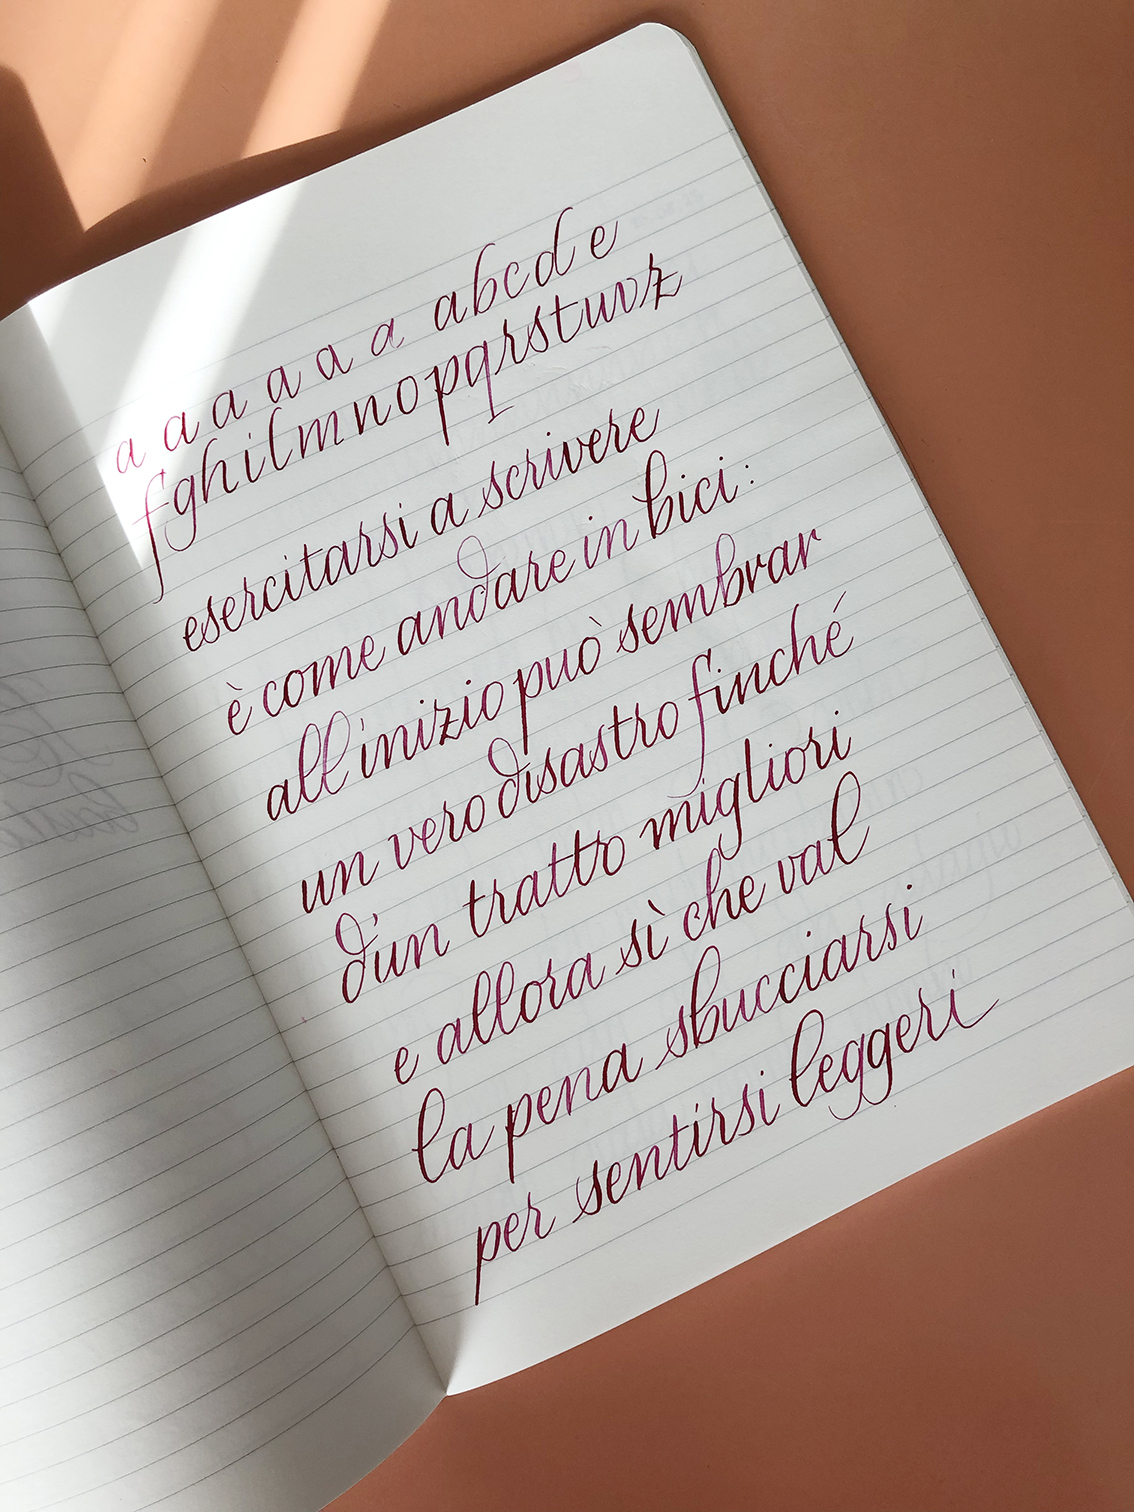 a a a a a a abcd e
fghilmnopqrstuvz
esercitarsi a scrivere
è come andare in bici:
all'inizio può sembrar
un vero disastro finché
d'un tratto migliori
e allora sì che val
la pena sbucciarsi
per sentirsi leggeri